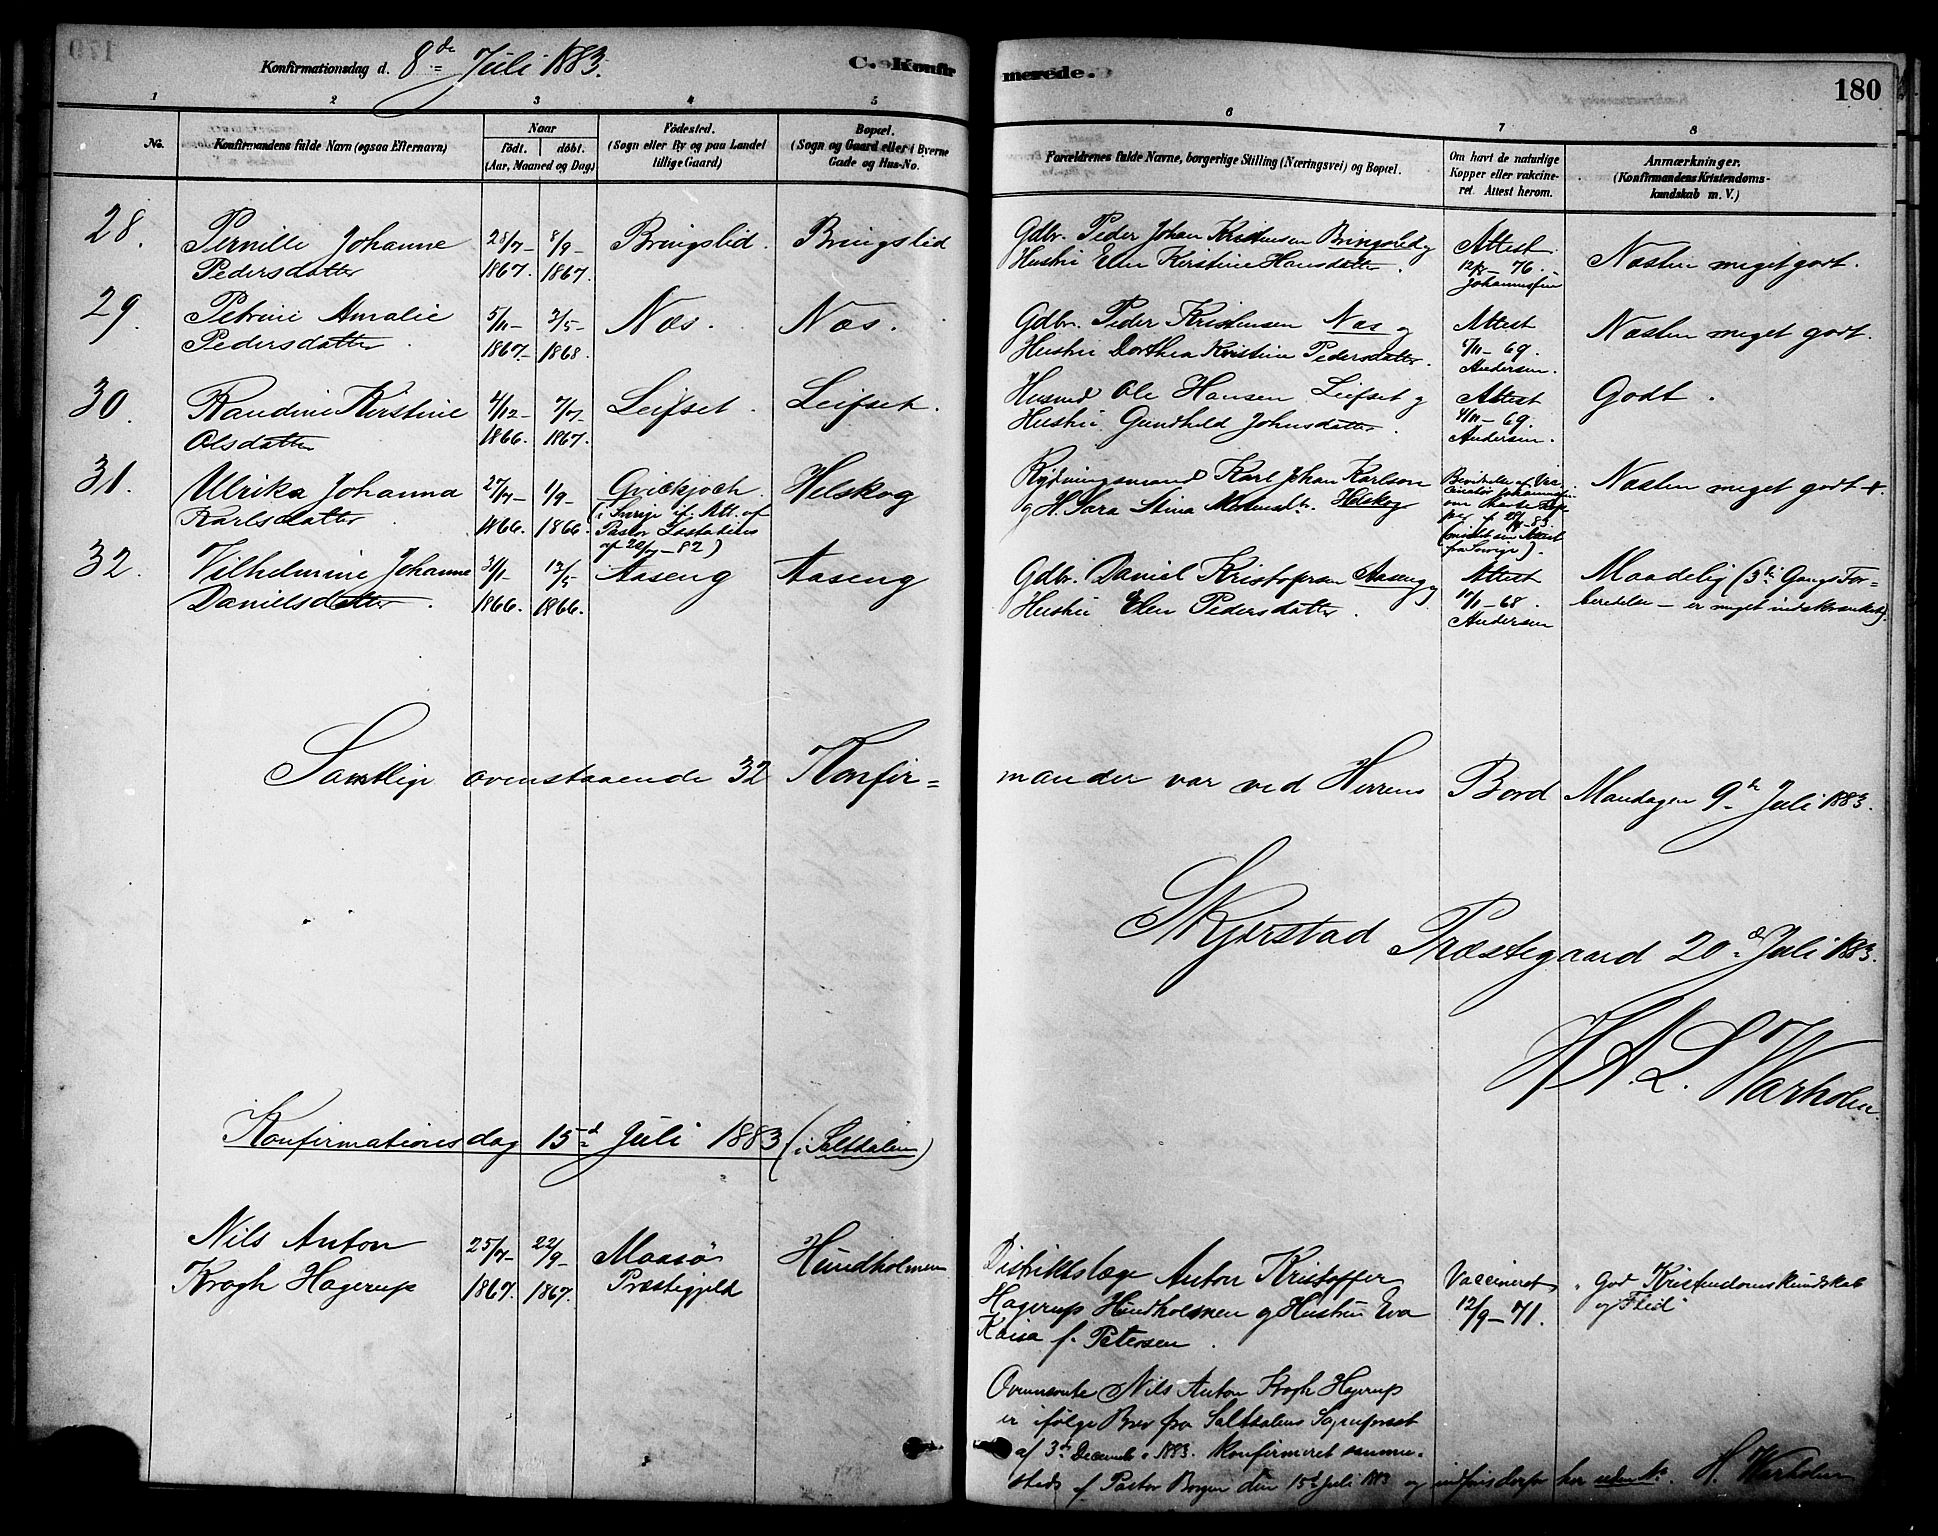 Konfirmationsdag d. 8de Juli 1883.
C. Konfirmerede.
180
1 2 3 4 5 6 7 8
No.
Konfirmandens fulde Navn (ogsaa Efternavn)
Naar
födt. döbt.
(Aar, Maaned og Dag)
Födested.
(Sogn eller By og paa Landet
tillige Gaard)
Bopæl.
(Sogn og Gaard eller i Byerne
Gade og Hus-No.
Forældrenes fulde Navne, borgerlige Stilling (Næringsvei) og Bopæl.
Om havt de naturlige
Kopper eller vakcine-
ret. Attest herom.
Anmærkninger.
(Konfirmandens Kristendoms-
kundskab m. V.)
28. Pernille Johanne 28/7- 8/9- Bringslid. Bringslid Gdbr. Peder Johan Kristensen Bringslid og Attest Næsten meget godt.
Pedersdatter 1867. 1867. Hustru Elen Kerstine Hansdatter. 76.
29. Petrine Amalie 5/11- 3/5- Næs. Næs. Gdbr. Peder Kristensen Næs og Attest Næsten meget godt.
Pedersdatter. 1867- 1868. Hustru Dorthea Kerstine Pedersdatter. 69.
Andersen.
30. Randine Kerstine 4/12- 7/7- Leifset. Leifset. Husmd Ole Hansen Leifset og Attest Godt.
Olsdatter 1866. 1867. Hustru Gundhild Johnsdatter. 4/11-69.
Andersen.
31. Ulrika Johanna 27/7- 1/9- Qvickjock. Helskog Rydningsmand Karl Johan Karlson Næsten meget godt +.
Karlsdatter. 1866. 1866. (i Sverige if. Att. af og H. Sara Stina Helskog
Pastor
af 20/7-82) (mistet sin Attest
fra Sverige).
32. Vilhelmine Johanne 3/1- 13/5- Aaseng Aaseng Gdbr. Daniel Kristofersen Aaseng og Attest Maadelig (3die Gangs For-
Danielsdatter. 1866. 1866. Hustru Elen Pedersdatter. 11/1-68. beredelse - er meget indskrænket).
Andersen
Samtlige ovenstaaende 32 Konfir=
mander var ved Herrens Bord Mandagen 9de Juli 1883.
Skjerstad Præstegaard 20de Juli 1883.
H A. L. Warholm.
Konfirmationsdag 15de Juli 1883 (i Saltdalen)
Nils Anton 25/7- 22/9- Maasø Hundholmen Distriktslæge Anton Kristoffer Vaccineret "God Kristendomskundskab
Krogh Hagerup 1867. 1867. Præstegjeld Hagerup Hundholmen og Hustru Eva 12/9-71. og Flid"
Kaisa f. Petersen.
Ovennævnte Nils Anton Krogh Hagerup
er ifølge Brev fra Saltdalens Sognepræst
af 3de December 1883. konfirmeret samme-
steds af Pastor Borgen den 15de Juli 1883 og indføres derfor her uden No. H. Warholm